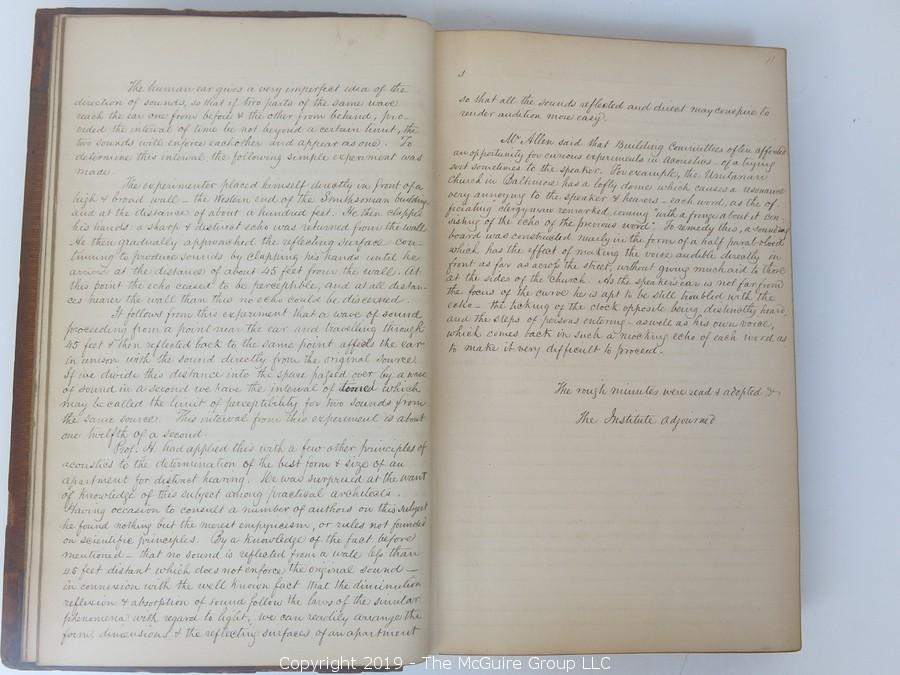 The human ear gives a very imperfect idea of the
direction of sounds, so that if two parts of the same wave
reach the ear one from before & the other from behind, pro-
vided the interval of time be not beyond a certain limit, the
two sounds will enforce each other and appear as one. To
determine this interval, the following simple experiment was
made.
The experimenter placed himself directly in front of a
high & broad wall - the Western end of the Smithsonian building
and at the distance of about a hundred feet. He then clapped
his hands: a sharp & distinct echo was returned from the wall
He then gradually approached the reflecting surface con-
tinuing to produce sounds by clapping his hands until he
arrived at the distance of about 45 feet from the wall. At
this point the echo ceased to be perceptible, and at all distan-
ces nearer the wall than this no echo could be discerned.
It follows from this experiment that a wave of sound,
proceeding from a point near the ear and travelling through
45 feet & then reflected back to the same point affects the ear
in unison with the sound directly from the original source
If we divide this distance into the space passed over by a wave
of sound in a second we have the interval of time which
may be called the limit of perceptibility for two sounds from
the same source. This interval from this experiment is about
one twelfth of a second.
Prof. H. had applied this with a few other principles of
acoustics to the determination of the best form & size of an
apartment for distinct hearing. He was surprised at the want
of knowledge of this subject among practical architects.
Having occasion to consult a number of authors on this subject
he found nothing but the merest empyricism, or rules not founded
on scientific principles. By a knowledge of the fact before
mentioned - that no sound is reflected from a wall less than
45 feet distant which does not enforce the original sound -
in connexion with the well known fact that the diminution
reflexion & absorption of sound follow the laws of the similar
phenomena with regard to light, we can readily arrange the
form, dimensions & the reflecting surfaces of an apartment
11
so that all the sounds reflected and direct may conspire to
render audition more easy.
Mr. Allen said that Building Committees often afforded
an opportunity for curious experiments in Acoustics - of a trying
sort sometimes to the speaker. For example, the Unitarian
Church in Baltimore has a lofty dome which causes a
very annoying to the speaker & hearers - each word, as the of
ficiating clergyman remarked, coming "with a fringe about it con-
sisting of the echo of the previous word". To remedy this, a sounding
board was constructed in the form of a half paraboloid
which has the effect of making the voice audible directly in
front as far as across the street, without giving much aid to those
at the sides of the Church. As the speakers ear is not far from
the focus of the curve he is apt to be still troubled with the
echo - the ticking of the clock opposite being distinctly heard,
and the steps of persons entering - as well as his own voice,
which comes back in such a mocking echo of each word as
to make it very difficult to proceed.
The rough minutes were read & adopted &
The Institute adjourned
Copyright 2019 - The McGuire Group LLC